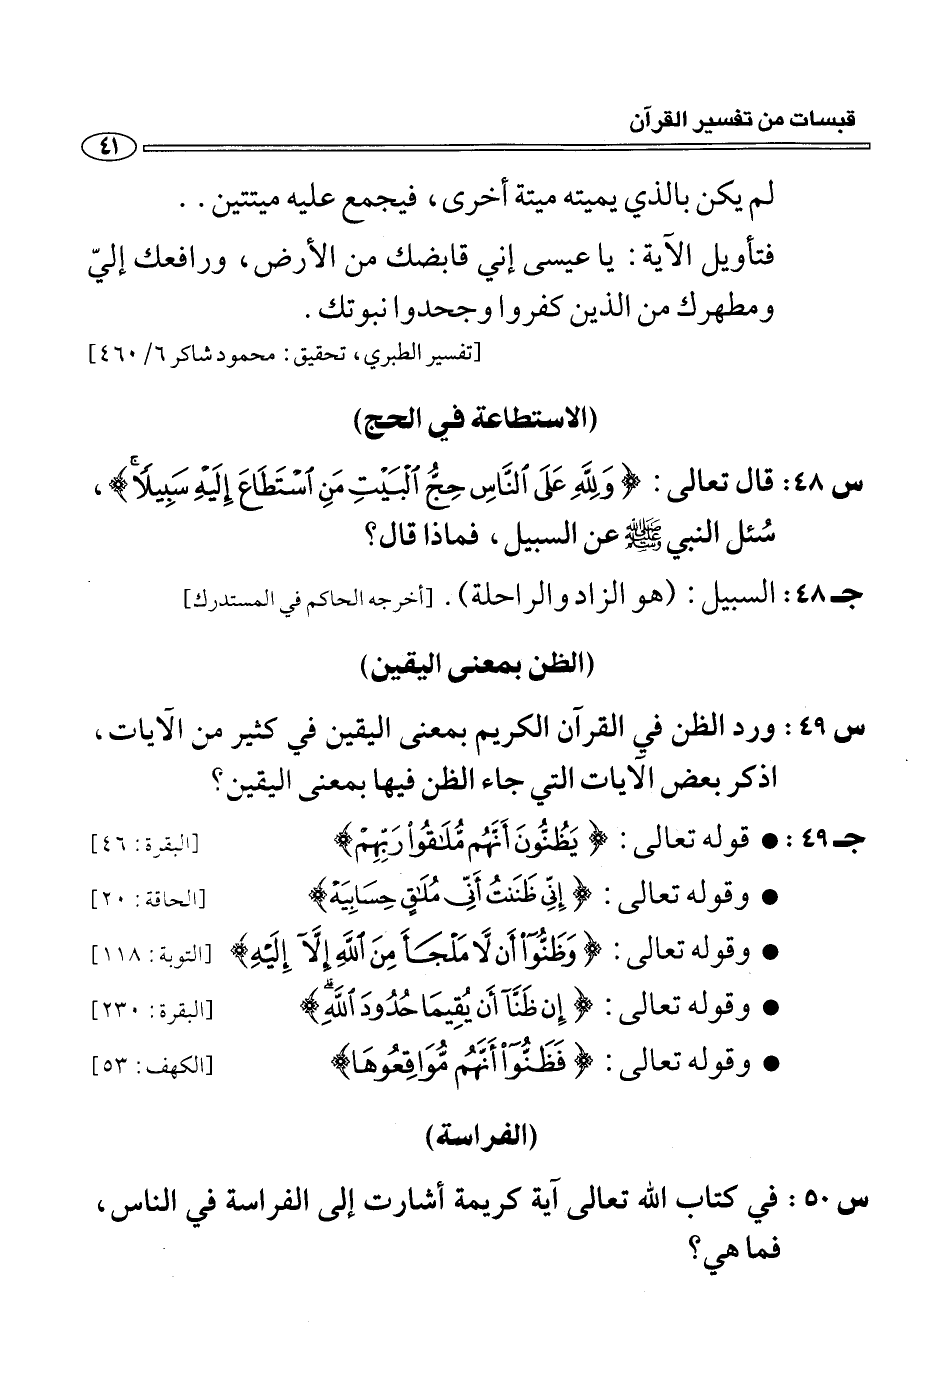 قبسات من تفسير القرآن
٤١
لم يكن بالذي يميته ميتة أخرى، فيجمع عليه ميتتين . .
فتأويل الآية : يا عيسى إني قابضك من الأرض، ورافعك إليّ
ومطهرك من الذين كفروا وجحدوا نبوتك .
[تفسير الطبري، تحقيق : محمود شاكر ٦/ ٤٦٠]
(الاستطاعة في الحج)
س ٤٨ : قال تعالى : ﴿ وَلِلَّهِ عَلَى ٱلنَّاسِ حِجُّ ٱلْبَيْتِ مَنِ ٱسْتَطَاعَ إِلَيْهِ سَبِيلًاۚ ﴾ ،
سُئل النبي ﷺ عن السبيل، فماذا قال؟
جـ ٤٨ : السبيل : (هو الزاد والراحلة) . [أخرجه الحاكم في المستدرك]
(الظن بمعنى اليقين)
س ٤٩ : ورد الظن في القرآن الكريم بمعنى اليقين في كثير من الآيات،
اذكر بعض الآيات التي جاء الظن فيها بمعنى اليقين؟
جـ ٤٩ : ● قوله تعالى : ﴿ يَظُنُّونَ أَنَّهُم مُّلَٰقُوا۟ رَبِّهِمْ ﴾ [البقرة : ٤٦]
● وقوله تعالى : ﴿ إِنِّى ظَنَنتُ أَنِّى مُلَٰقٍ حِسَابِيَهْ ﴾ [الحاقة : ٢٠]
● وقوله تعالى : ﴿ وَظَنُّوٓا۟ أَن لَّا مَلْجَأَ مِنَ ٱللَّهِ إِلَّآ إِلَيْهِ ﴾ [التوبة : ١١٨]
● وقوله تعالى : ﴿ إِن ظَنَّآ أَن يُقِيمَا حُدُودَ ٱللَّهِۗ ﴾ [البقرة : ٢٣٠]
● وقوله تعالى : ﴿ فَظَنُّوٓا۟ أَنَّهُم مُّوَاقِعُوهَا ﴾ [الكهف : ٥٣]
(الفراسة)
س ٥٠ : في كتاب الله تعالى آية كريمة أشارت إلى الفراسة في الناس،
فما هي؟